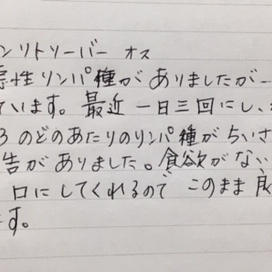 ンリトリーバー オス
悪性リンパ種がありましたが一
ています。最近一日三回にし、
のどのあたりのリンパ種がちいさ
告がありました。食欲がない
口にしてくれるので このまま
す。